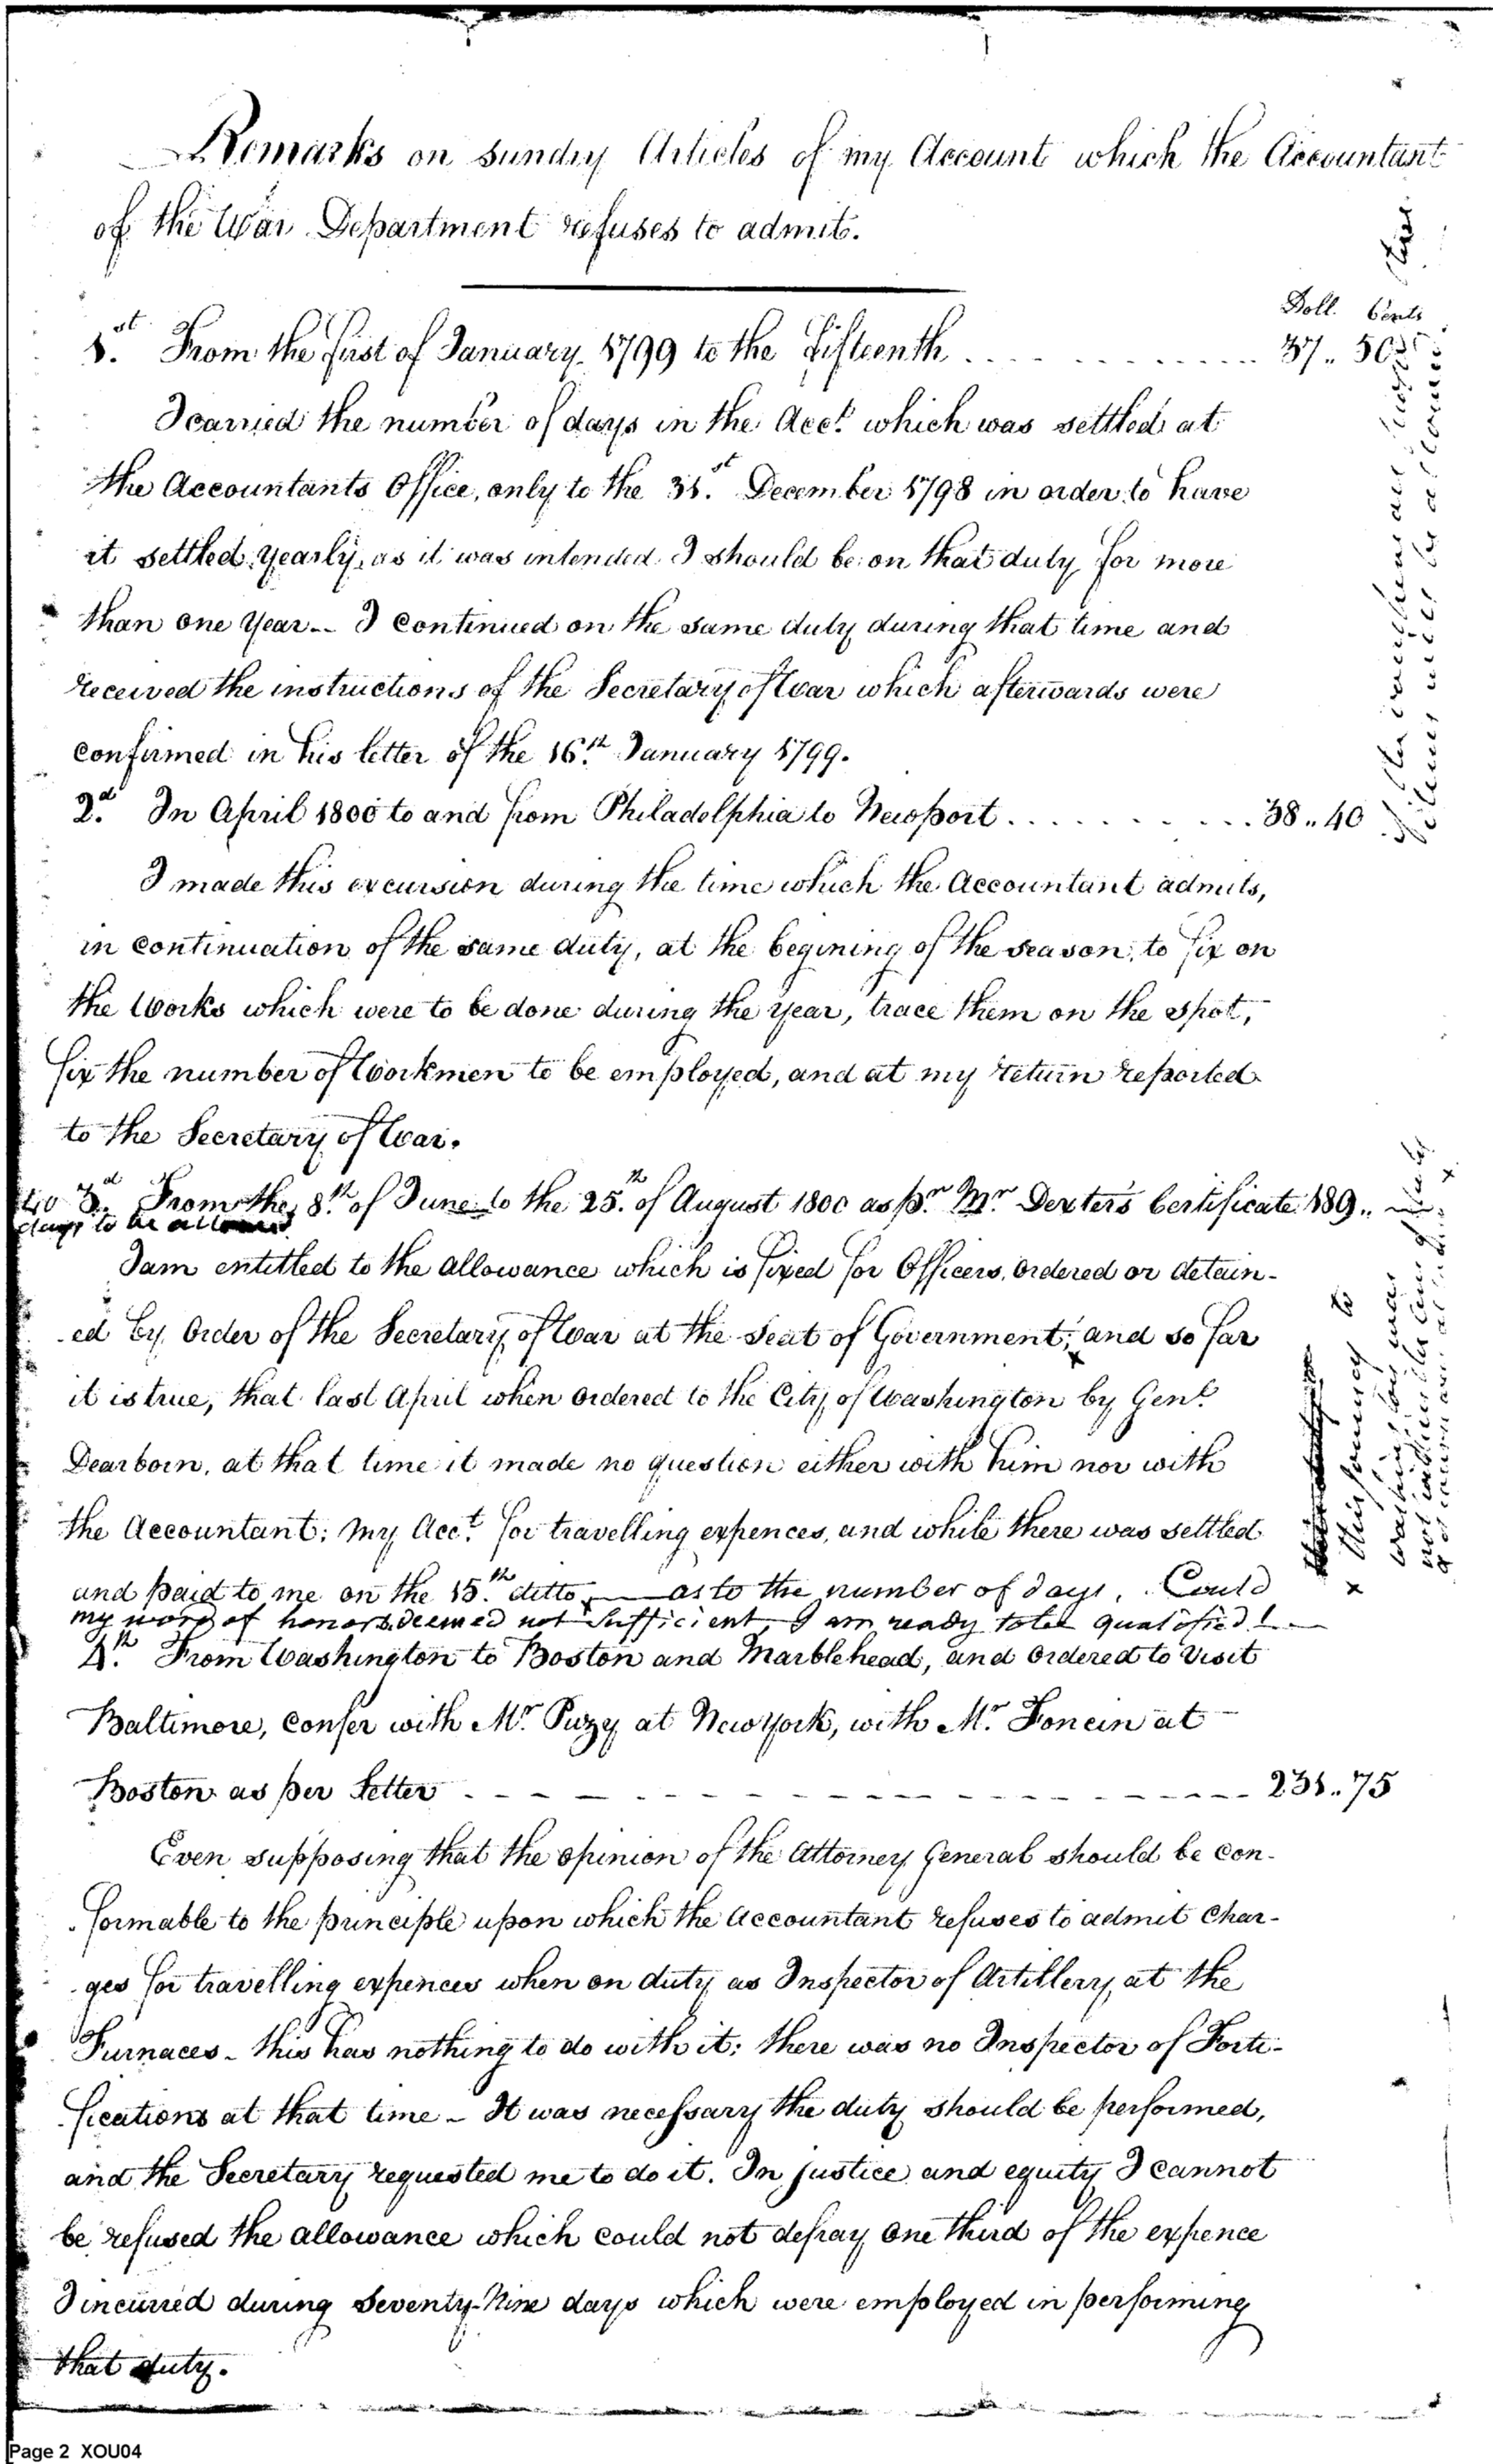 Remarks on sundry Articles of my Account which the Accountant
of the War Department refuses to admit.
Doll. Cents
1.st From the first of January 1799 to the fifteenth . . . . . . . . . . . 37.. 50
I carried the number of days in the Acct. which was settled at
the Accountants Office, only to the 31.st December 1798 in order to have
it settled yearly, as it was intended I should be on that duty for more
than one Year -- I continued on the same duty during that time and
received the instructions of the Secretary of War which afterwards were
confirmed in his letter of the 16.th January 1799.
2.d In April 1800 to and from Philadelphia to Newport . . . . . . . . . . 38.. 40
I made this excursion during the time which the Accountant admits,
in continuation of the same duty, at the begining of the season, to fix on
the Works which were to be done during the year, trace them on the spot,
fix the number of Workmen to be employed, and at my return reported
to the Secretary of War.
3.d From the 8.th of June to the 25.th of August 1800 as pr. Mr. Dexter's Certificate 189..
days to be allowed
I am entitled to the allowance which is fixed for Officers, ordered or detain-
ed by Order of the Secretary of War at the Seat of Government; and so far
it is true, that last April when ordered to the City of Washington by Genl.
Dearborn, at that time it made no question either with him nor with
the Accountant; my Acct. for travelling expences, and while there was settled
and paid to me on the 15.th ditto, — as to the number of days, Could
my word of honor deemed not sufficient, I am ready to be qualified! —
4.th From Washington to Boston and Marblehead, and ordered to visit
Baltimore, confer with Mr. Puzy at New York, with Mr. Foncin at
Boston as per Letter - - - - - - - - - - - - - - - - 231.. 75
Even supposing that the opinion of the Attorney General should be con-
formable to the principle upon which the Accountant refuses to admit Char-
ges for travelling expences when on duty as Inspector of Artillery at the
Furnaces - this has nothing to do with it: there was no Inspector of Forti-
fications at that time - It was necessary the duty should be performed,
and the Secretary requested me to do it. In justice and equity I cannot
be refused the allowance which could not defray one third of the expence
I incurred during Seventy-Nine days which were employed in performing
that duty.
x this journey to
Page 2 XOU04